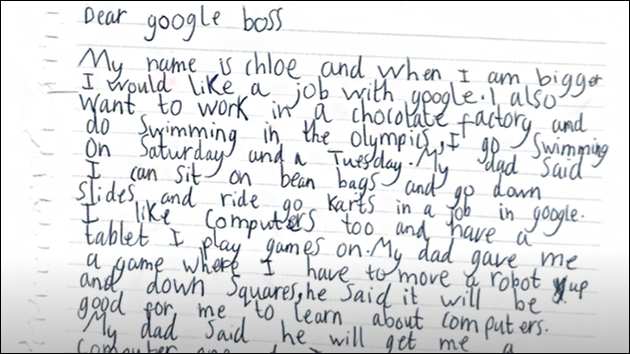 Dear google boss
My name is chloe and when I am bigger
I would like a job with google. I also
want to work in a chocolate factory and
do swimming in the olympics, I go swimming
on Saturday and a Tuesday. My dad said
I can sit on bean bags and go down
slides and ride go karts in a job in google.
I like computers too and have a
tablet I play games on. My dad gave me
a game where I have to move a robot up
and down squares, he said it will be
good for me to learn about computers.
My dad said he will get me a
computer